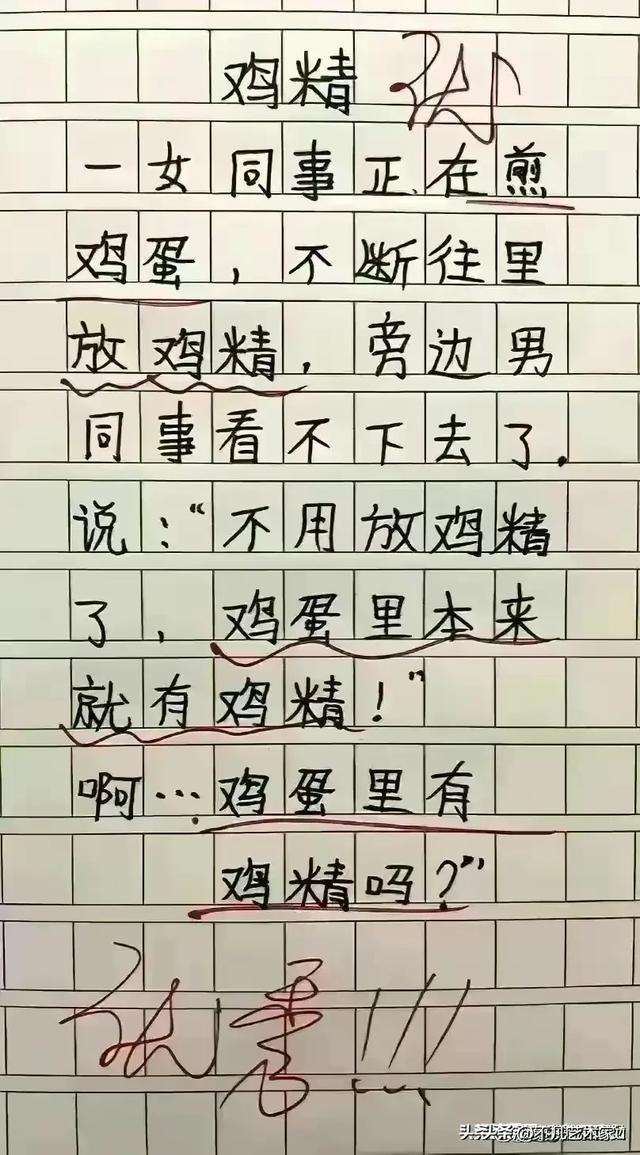 鸡精
一女同事正在煎
鸡蛋，不断往里
放鸡精，旁边男
同事看不下去了.
说："不用放鸡精
了，鸡蛋里本来
就有鸡精！"
啊…鸡蛋里有
鸡精吗？"